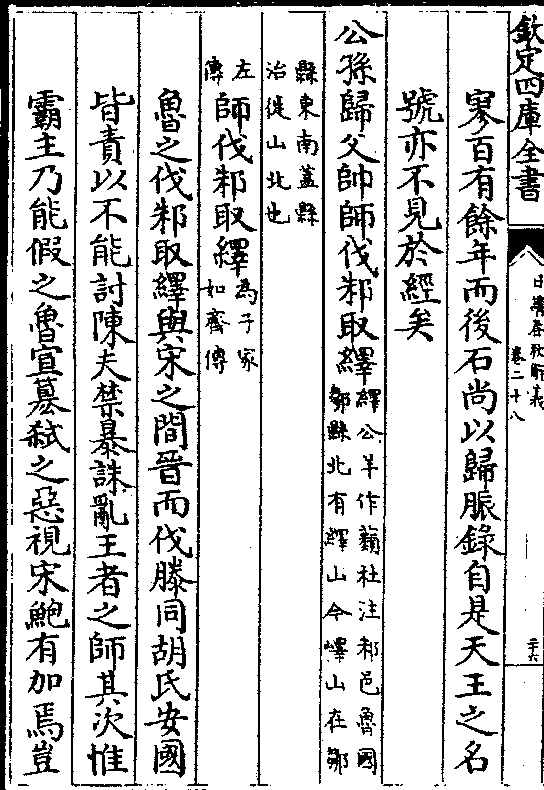 欽定四庫全書
日講春秋解義
卷二十八
寥百有餘年而後石尚以歸脤錄自是天王之名
號亦不見於經矣
公孫歸父帥師伐邾取繹
繹公羊作蘱杜注邾邑魯國
鄒縣北有繹山今嶧山在鄒
縣東南葢縣
治徙山北也
左
傳
師伐邾取繹
為子家
如齊傳
魯之伐邾取繹與宋之間晉而伐滕同胡氏安國
皆責以不能討陳夫禁暴誅亂王者之師其次惟
霸主乃能假之魯宣簒弑之惡視宋鮑有加焉豈